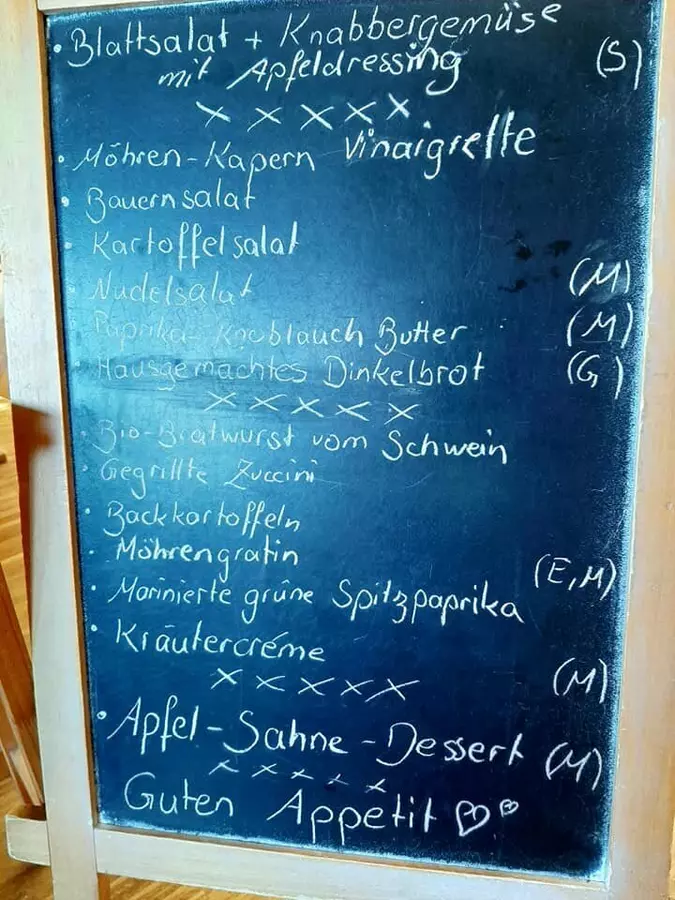 • Blattsalat + Knabbergemüse
mit Apfeldressing (S)
x x x x x
• Möhren-Kapern Vinaigrette
• Bauernsalat
• Kartoffelsalat
• Nudelsalat (M)
• Paprika-Knoblauch Butter (M)
• Hausgemachtes Dinkelbrot (G)
x x x x x
• Bio-Bratwurst vom Schwein
• Gegrillte Zuccini
• Backkartoffeln
• Möhrengratin (E,M)
• Marinierte grüne Spitzpaprika
• Kräutercréme (M)
x x x x x
• Apfel-Sahne-Dessert (M)
x x x x x
Guten Appetit ♡♡